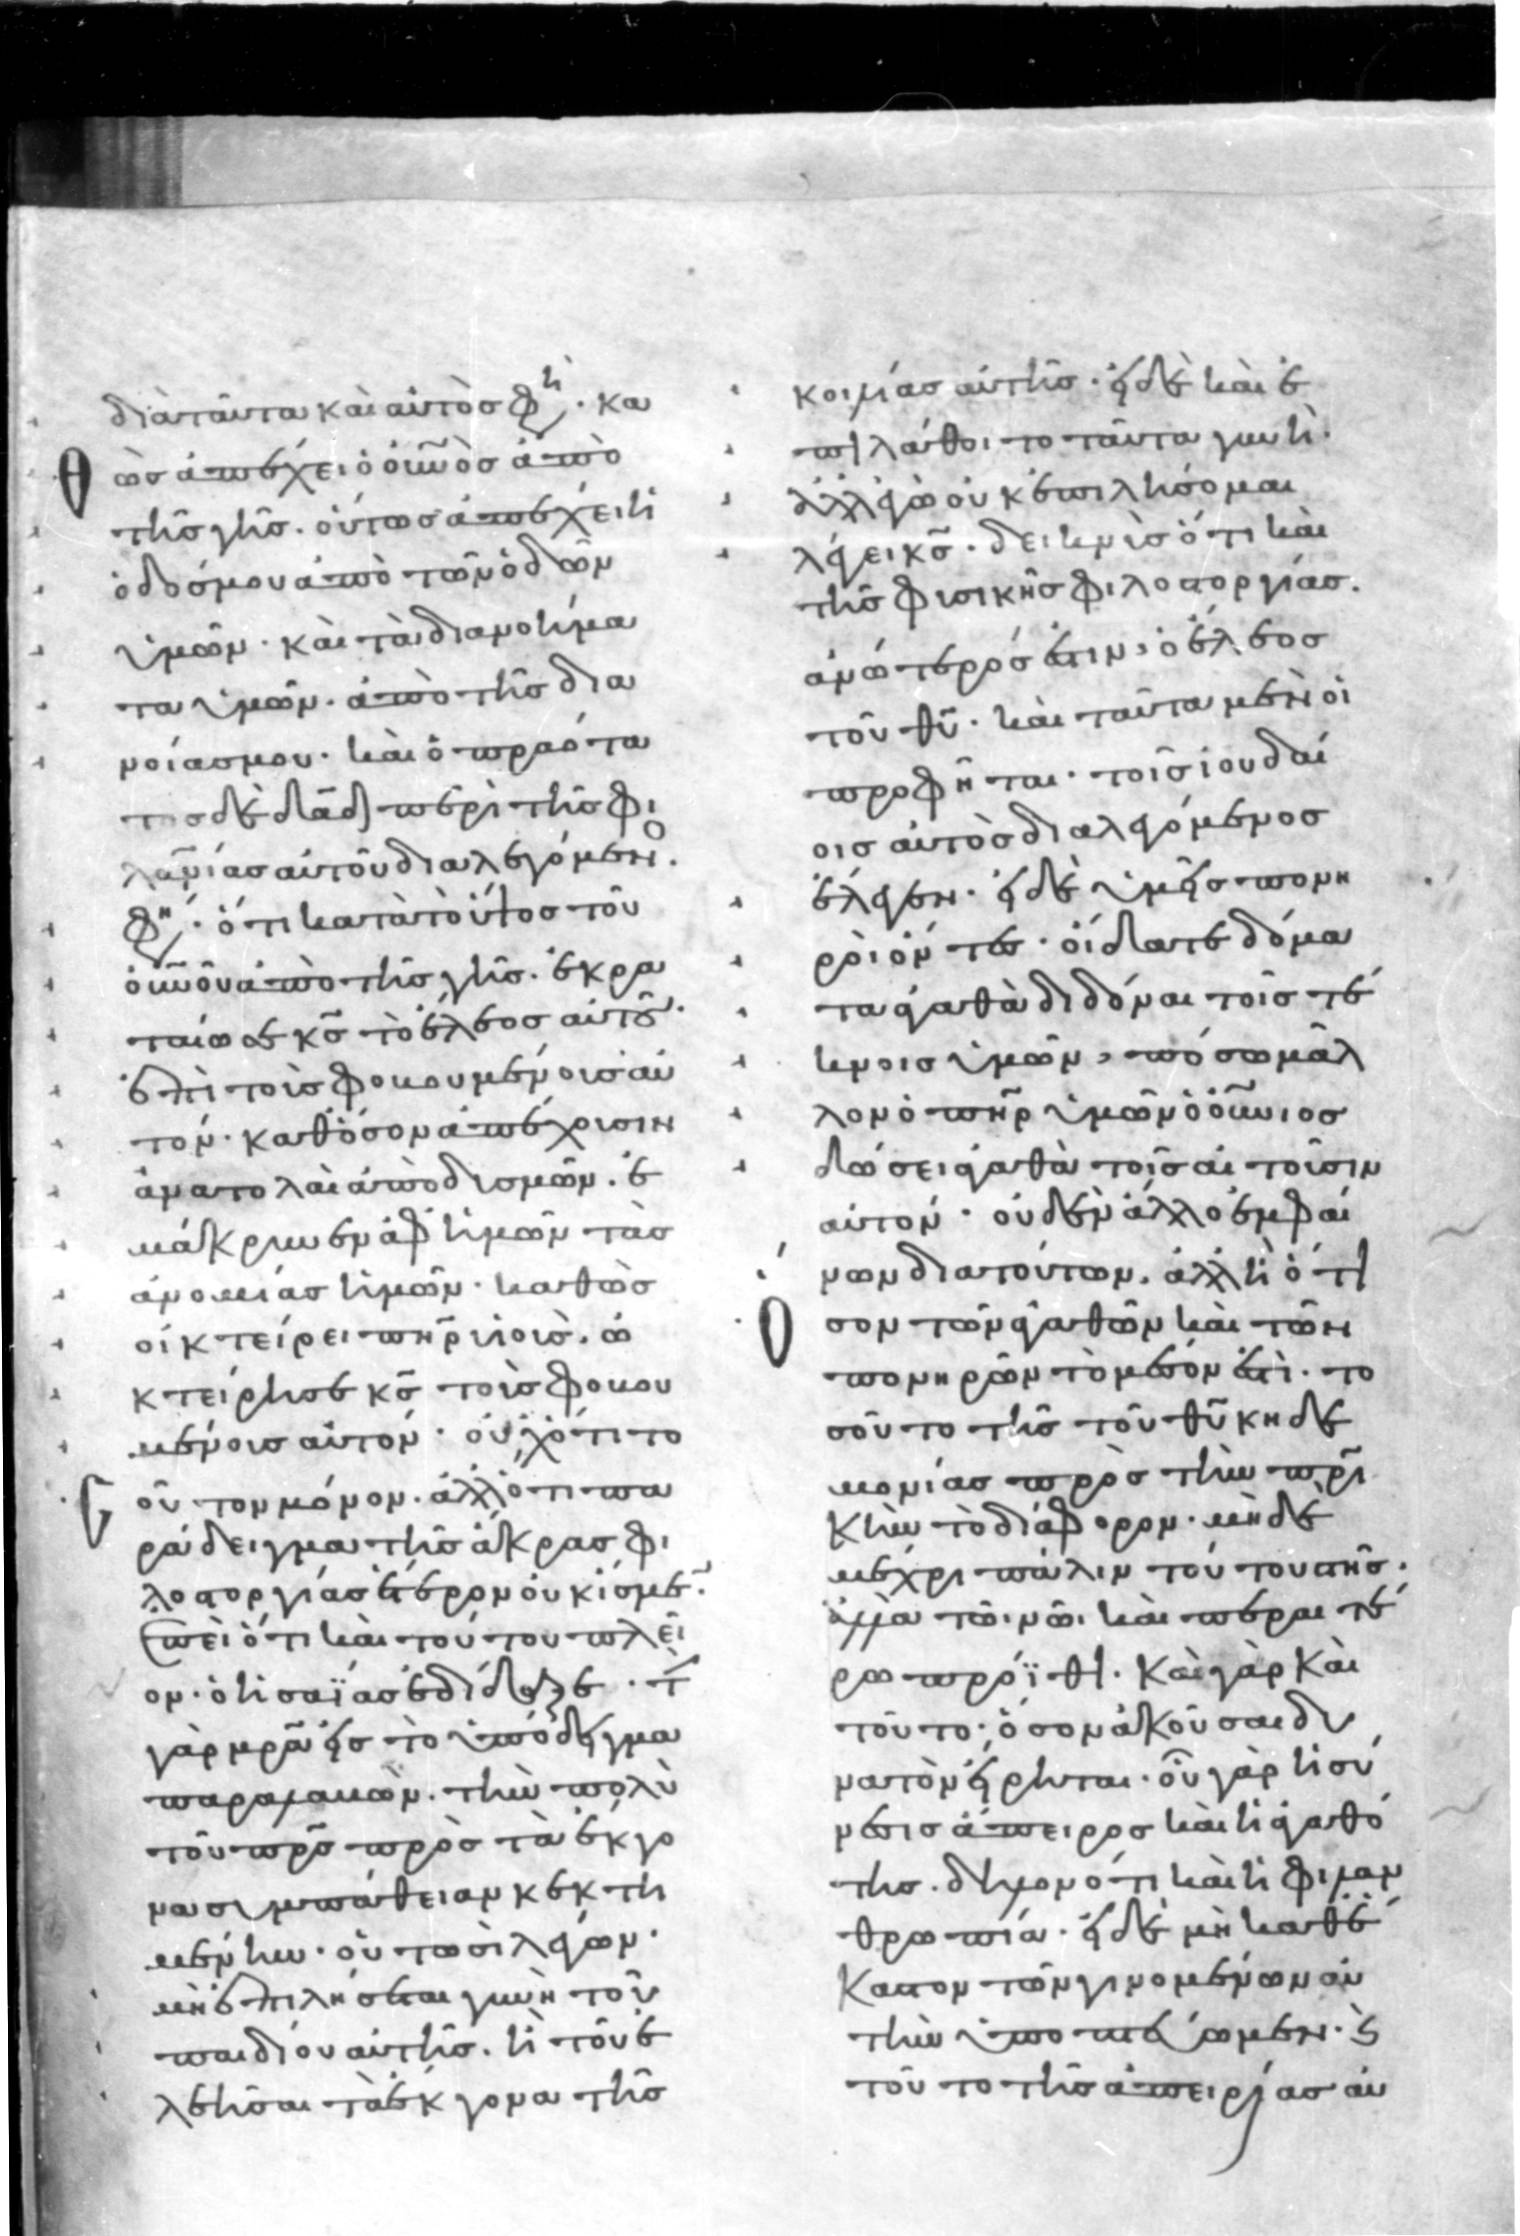 διὰ ταῦτα καὶ αὐτὸς φη(σὶ). κα
θ ὼς ἀπέχει ὁ οὐνὸς ἀπὸ
τῆς γῆς. οὕτως ἀπέχει ἡ
ὁδός μου ἀπὸ τῶν ὁδῶν
ὑμῶν. καὶ τὰ διανοήμα
τα ὑμῶν. ἀπὸ τῆς δια
νοίας μου. καὶ ὁ πραότα
τος δὲ δᾶδ περὶ τῆς φι
λανίας αὐτοῦ διαλεγόμενο.
φη. ὅτι κατὰ τὸ ὕψος τοῦ
οὐνοῦ ἀπὸ τῆς γῆς. ἐκρα
ταίωσε κς τὸ ἔλεος αὐτοῦ.
ἐπὶ τοῖς φοβουμένοις αὐ
τόν. καθόσον ἀπέχουσιν
ἀνατολαὶ ἀπὸ δυσμῶν. ἐ
μάκρυνεν ἀφ ἡμῶν τὰς
ἀνομίας ἡμῶν. καθὼς
οἰκτείρει πηρ υἱούς. ὠ
κτείρησε κς τοῖς φοβου
μένοις αὐτόν. οὐχ ὅτι το
σ οῦτον μόνον. ἀλλ ὅτι πα
ράδειγμα τῆς ἄκρας φι
λοστοργίας ἕτερον οὐκ ἴσμε.
ἐπεὶ ὅτι καὶ τούτου πλεῖ
ον. ὁ ἡσαΐας ἐδίδαξε. τὴ
γὰρ μρα εἰς τὸ ὑπόδειγμα
παραγαγών. τὴν πολὺ
τοῦ πρς πρὸς τὰ ἔκγο
να συμπάθειαν κεκτη
μένην. οὕτωσὶ λέγων.
μὴ ἐπιλήσεται γυνὴ τοῦ
παιδίου αὐτῆς. ἢ τοῦ ἐ
λεῆσαι τὰ ἔκγονα τῆς
κοιλίας αὐτῆς. εἰ δὲ καὶ ἐ
πιλάθοιτο ταῦτα γυνή.
ἀλλ ἐγὼ οὐκ ἐπιλήσομαι
λέγει κς. δεικνὺς ὅτι καὶ
τῆς φυσικῆς φιλοστοργίας.
ἀνώτερός ἐστιν, ὁ ἔλεος
τοῦ θυ. καὶ ταῦτα μὲν οἱ
προφῆται. τοῖς ἰουδαί
οις αὐτὸς διαλεγόμενος
ἔλεγεν. εἰ δὲ ὑμεῖς πονη
ροὶ ὄντες. οἴδατε δόμα
τα ἀγαθὰ διδόναι τοῖς τέ
κνοις ὑμῶν, πόσω μᾶλ
λον ὁ πηρ ὑμῶν ὁ οὐνιος
δώσει ἀγαθὰ τοῖς αἰτοῦσιν
αὐτόν. οὐδὲν ἄλλο ἐμφαί
νων διὰ τούτων. ἀλλ ἢ ὅτι
ὅ σον τῶν ἀγαθῶν καὶ τῶν
πονηρῶν τὸ μέσον ἐστὶ. το
σοῦτο τῆς τοῦ θυ κηδε
μονίας πρὸς τὴν πρι
κὴν τὸ διάφορον. μὴ δὲ
μέχρι πάλιν τούτου στῆς.
ἀλλὰ τῶι νῶι καὶ περαιτέ
ρω πρόϊθι. καὶ γὰρ καὶ
τοῦτο, ὅσον ἀκοῦσαι δυ
νατὸν εἴρηται. οὗ γὰρ ἡ σύ
νεσις ἄπειρος καὶ ἡ ἀγαθό
της. δῆλον ὅτι καὶ ἡ φιλαν
θρωπία. εἰ δὲ μὴ καθ ἕ
καστον τῶν γινομένων αὐ
τὴν ὑποπτεύωμεν. καὶ
τοῦτο τῆς ἀπειρίας αὐ